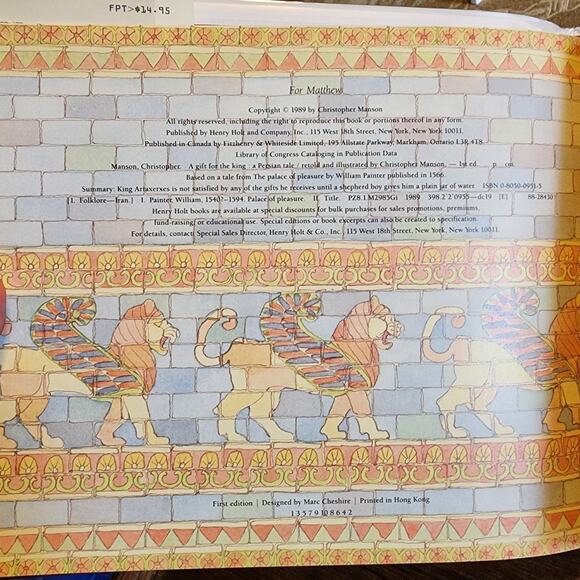 FPT>$14.95
For Matthew
Copyright © 1989 by Christopher Manson
All rights reserved, including the right to reproduce this book or portions thereof in any form.
Published by Henry Holt and Company, Inc., 115 West 18th Street, New York, New York 10011.
Published in Canada by Fitzhenry & Whiteside Limited, 195 Allstate Parkway, Markham, Ontario L3R 4T8.
Library of Congress Cataloging in Publication Data
Manson, Christopher. A gift for the king : a Persian tale / retold and illustrated by Christopher Manson. — 1st ed. p. cm.
Based on a tale from The palace of pleasure by William Painter published in 1566.
Summary: King Artaxerxes is not satisfied by any of the gifts he receives until a shepherd boy gives him a plain jar of water. ISBN 0-8050-0951-5
[1. Folklore—Iran.] I. Painter, William, 1540?-1594. Palace of pleasure. II. Title. PZ8.1.M2985Gi 1989 398.2'2'0955—dc19 [E] 88-28430
Henry Holt books are available at special discounts for bulk purchases for sales promotions, premiums,
fund-raising or educational use. Special editions or book excerpts can also be created to specification.
For details, contact: Special Sales Director, Henry Holt & Co., Inc., 115 West 18th Street, New York, New York 10011.
First edition | Designed by Marc Cheshire | Printed in Hong Kong
1 3 5 7 9 10 8 6 4 2